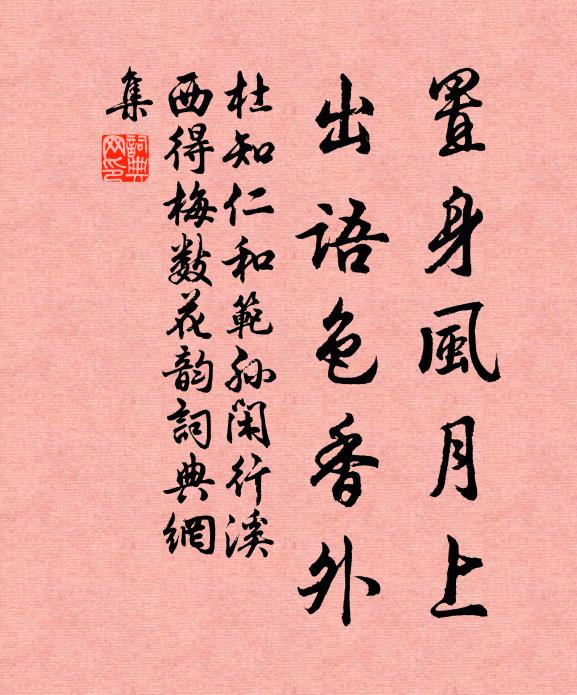 置身風月上
出語色香外
杜知仁和範孫閑行溪
西得梅數花韵詞典網
集
詞典網印